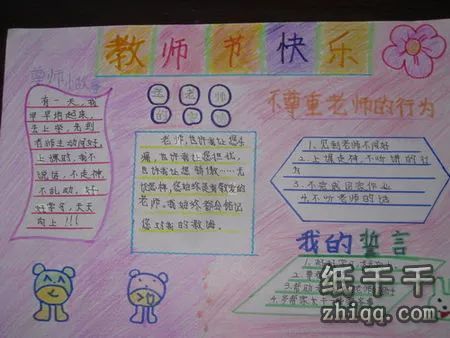 教师节快乐
尊师小故事
有一天，我
早早地起来，
去上学，见到
老师主动问好，
上课时，我不
说话，不走神，
不乱动，好
好学习，天天
向上!!!
送老师
的
老师，也许我让您头
痛，也许我让您担忧，
也许我让您骄傲……无
论怎样，您始终是我敬爱的
老师。我始终都会铭记
您对我的教诲。
不尊重老师的行为
1、见到老师不问好
2、上课走神，不听讲的行
为
3、不完成回家作业
4、不听老师的话
我的誓言
纸千千
zhiqq.com